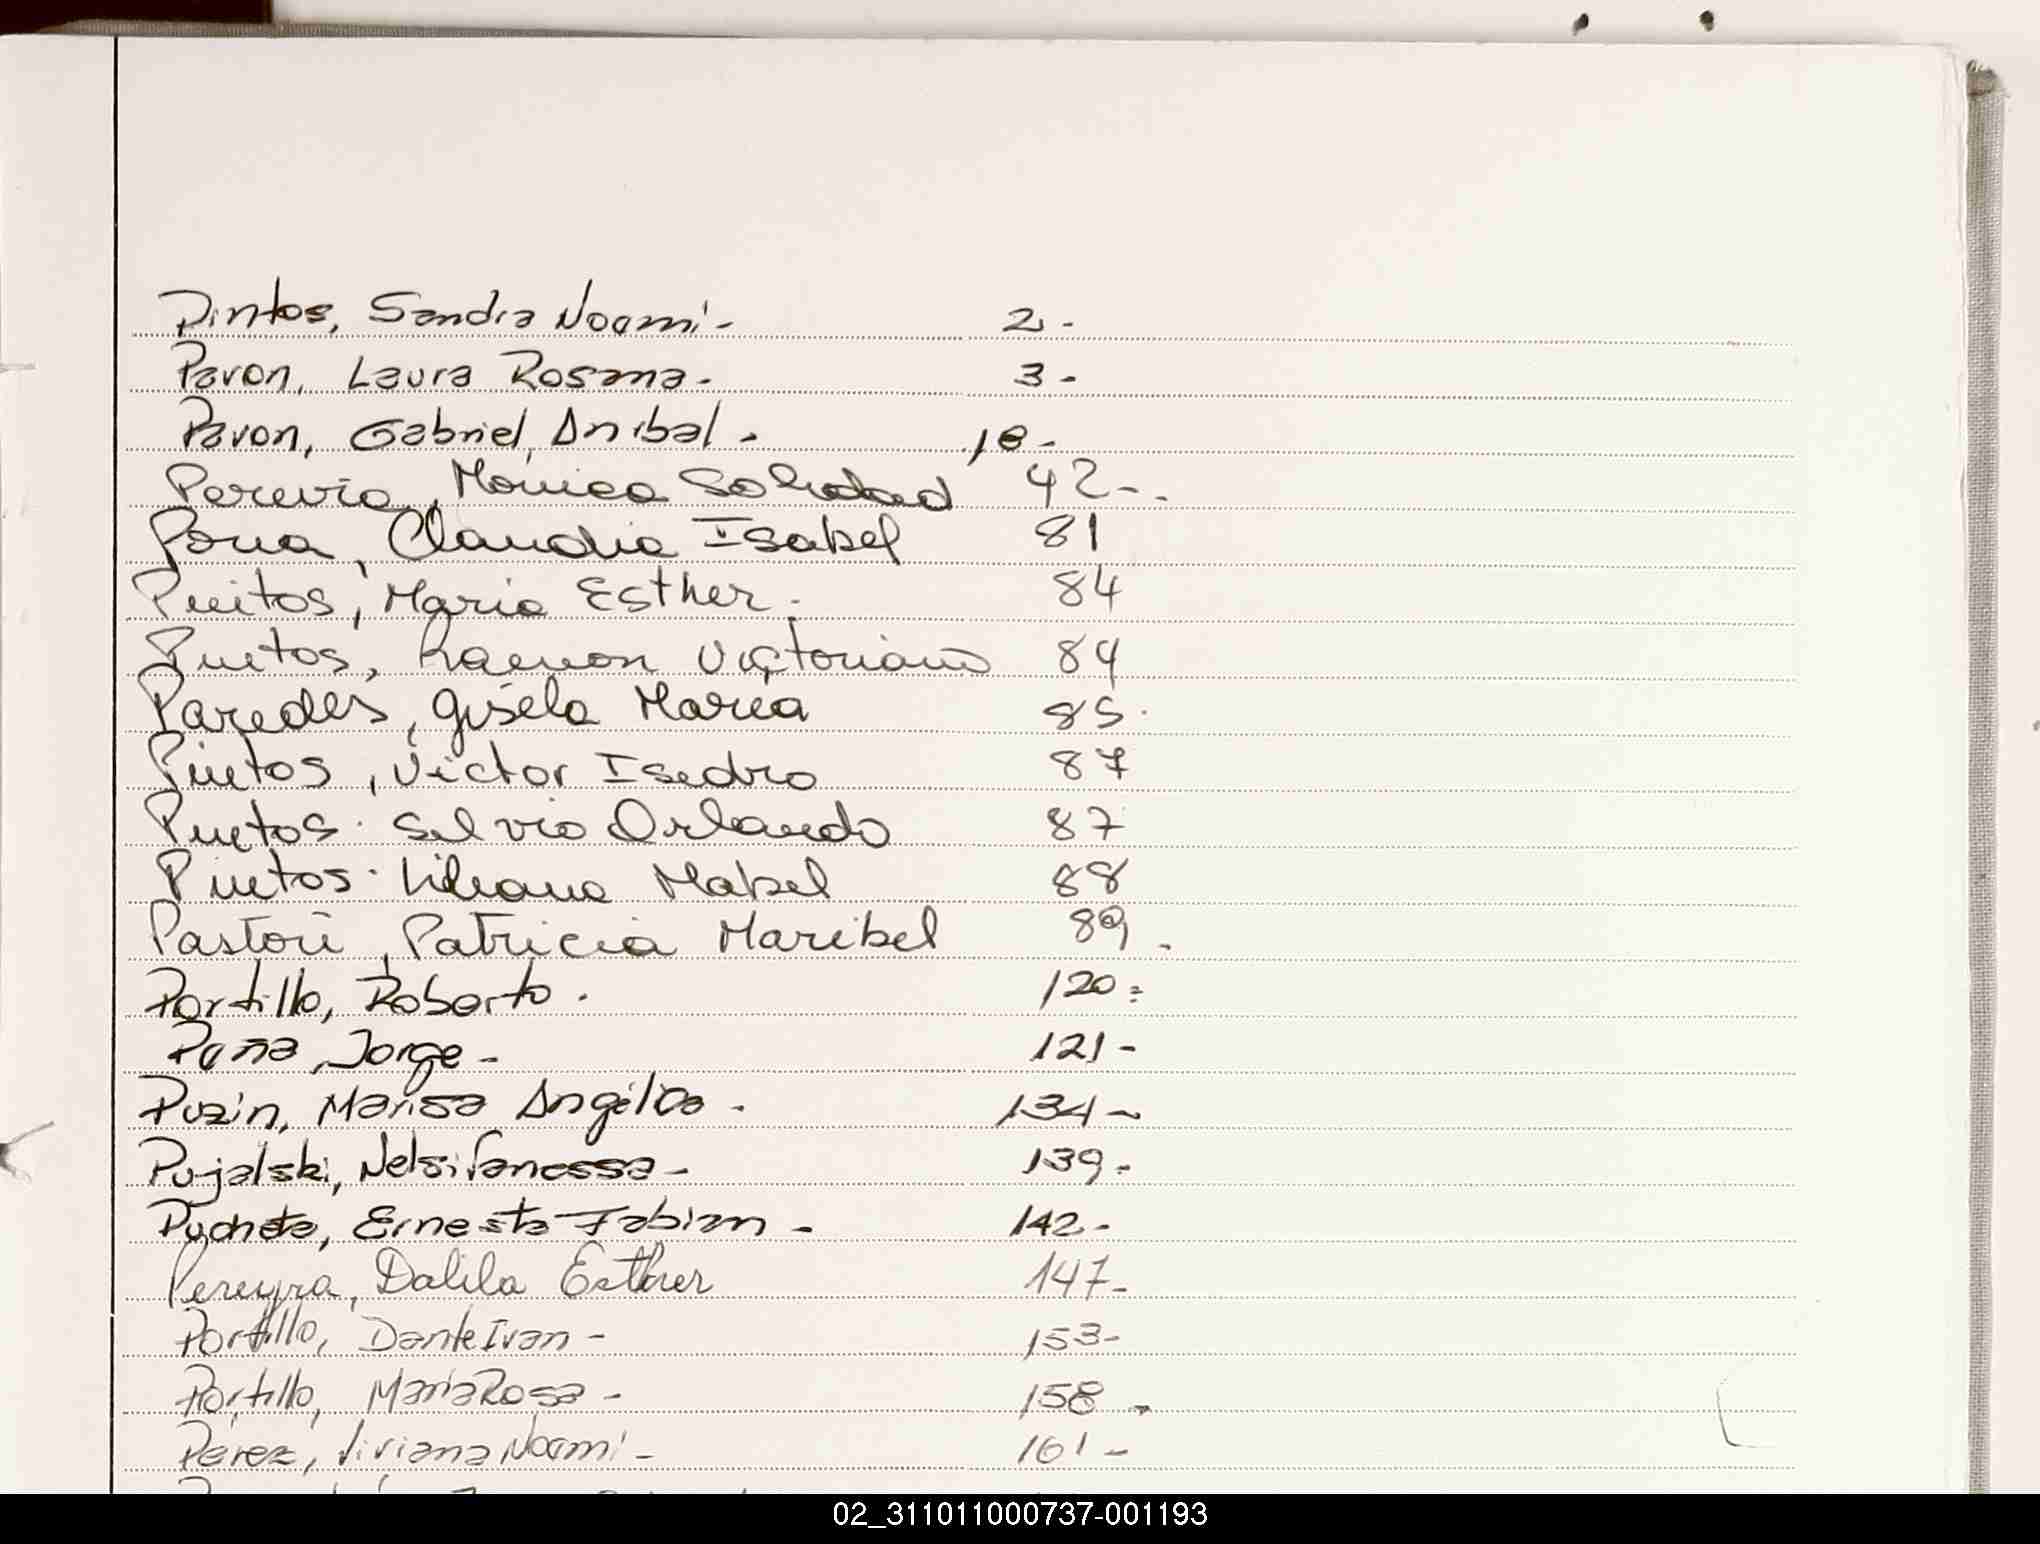 Pintos, Sandra Noemi- 2-
Pavon, Laura Rosana- 3-
Pavon, Gabriel Anibal- 18-
Pereyra, Mónica Soledad 42-.
Claudia Isabel 81
Pintos, Maria Esther. 84
Pintos, Ramon Victoriano 84
Paredes, Gisela María 85.
Pintos, Victor Isidro 87
Pintos. Silvio Orlando 87
Pintos. Liliana Mabel 88
Pastori, Patricia Maribel 89.
Portillo, Roberto. 120=
Peña, Jorge- 121-
Puzin, Marisa 134-
Pujalski, Nelsi Vanessa- 139-
Pucheta, Ernesto Fabian- 142-
Pereyra, Dalila Esther 147-
Portillo, Dante Ivan- 153-
Portillo, Maria Rosa- 158-
Pérez, Viviana Noemi- 161-
02_311011000737-001193